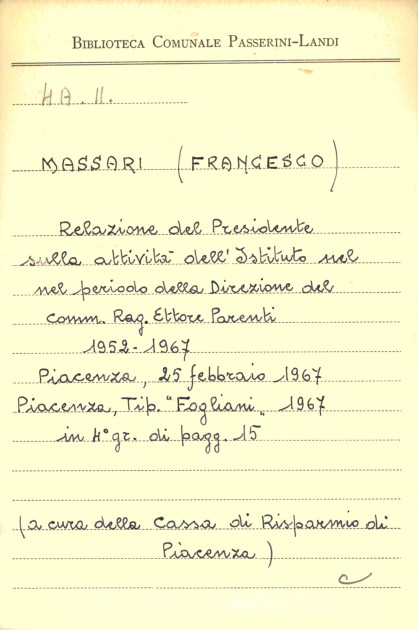 BIBLIOTECA COMUNALE PASSERINI-LANDI
4A. II.
MASSARI (FRANCESCO)
Relazione del Presidente
sulla attività dell'Istituto nel
nel periodo della Direzione del
comm. Rag. Ettore Parenti
1952-1967
Piacenza, 25 febbraio 1967
Piacenza, Tip. "Fogliani„ 1967
in 4° gr. di pagg. 15
(a cura della Cassa di Risparmio di
Piacenza)
c